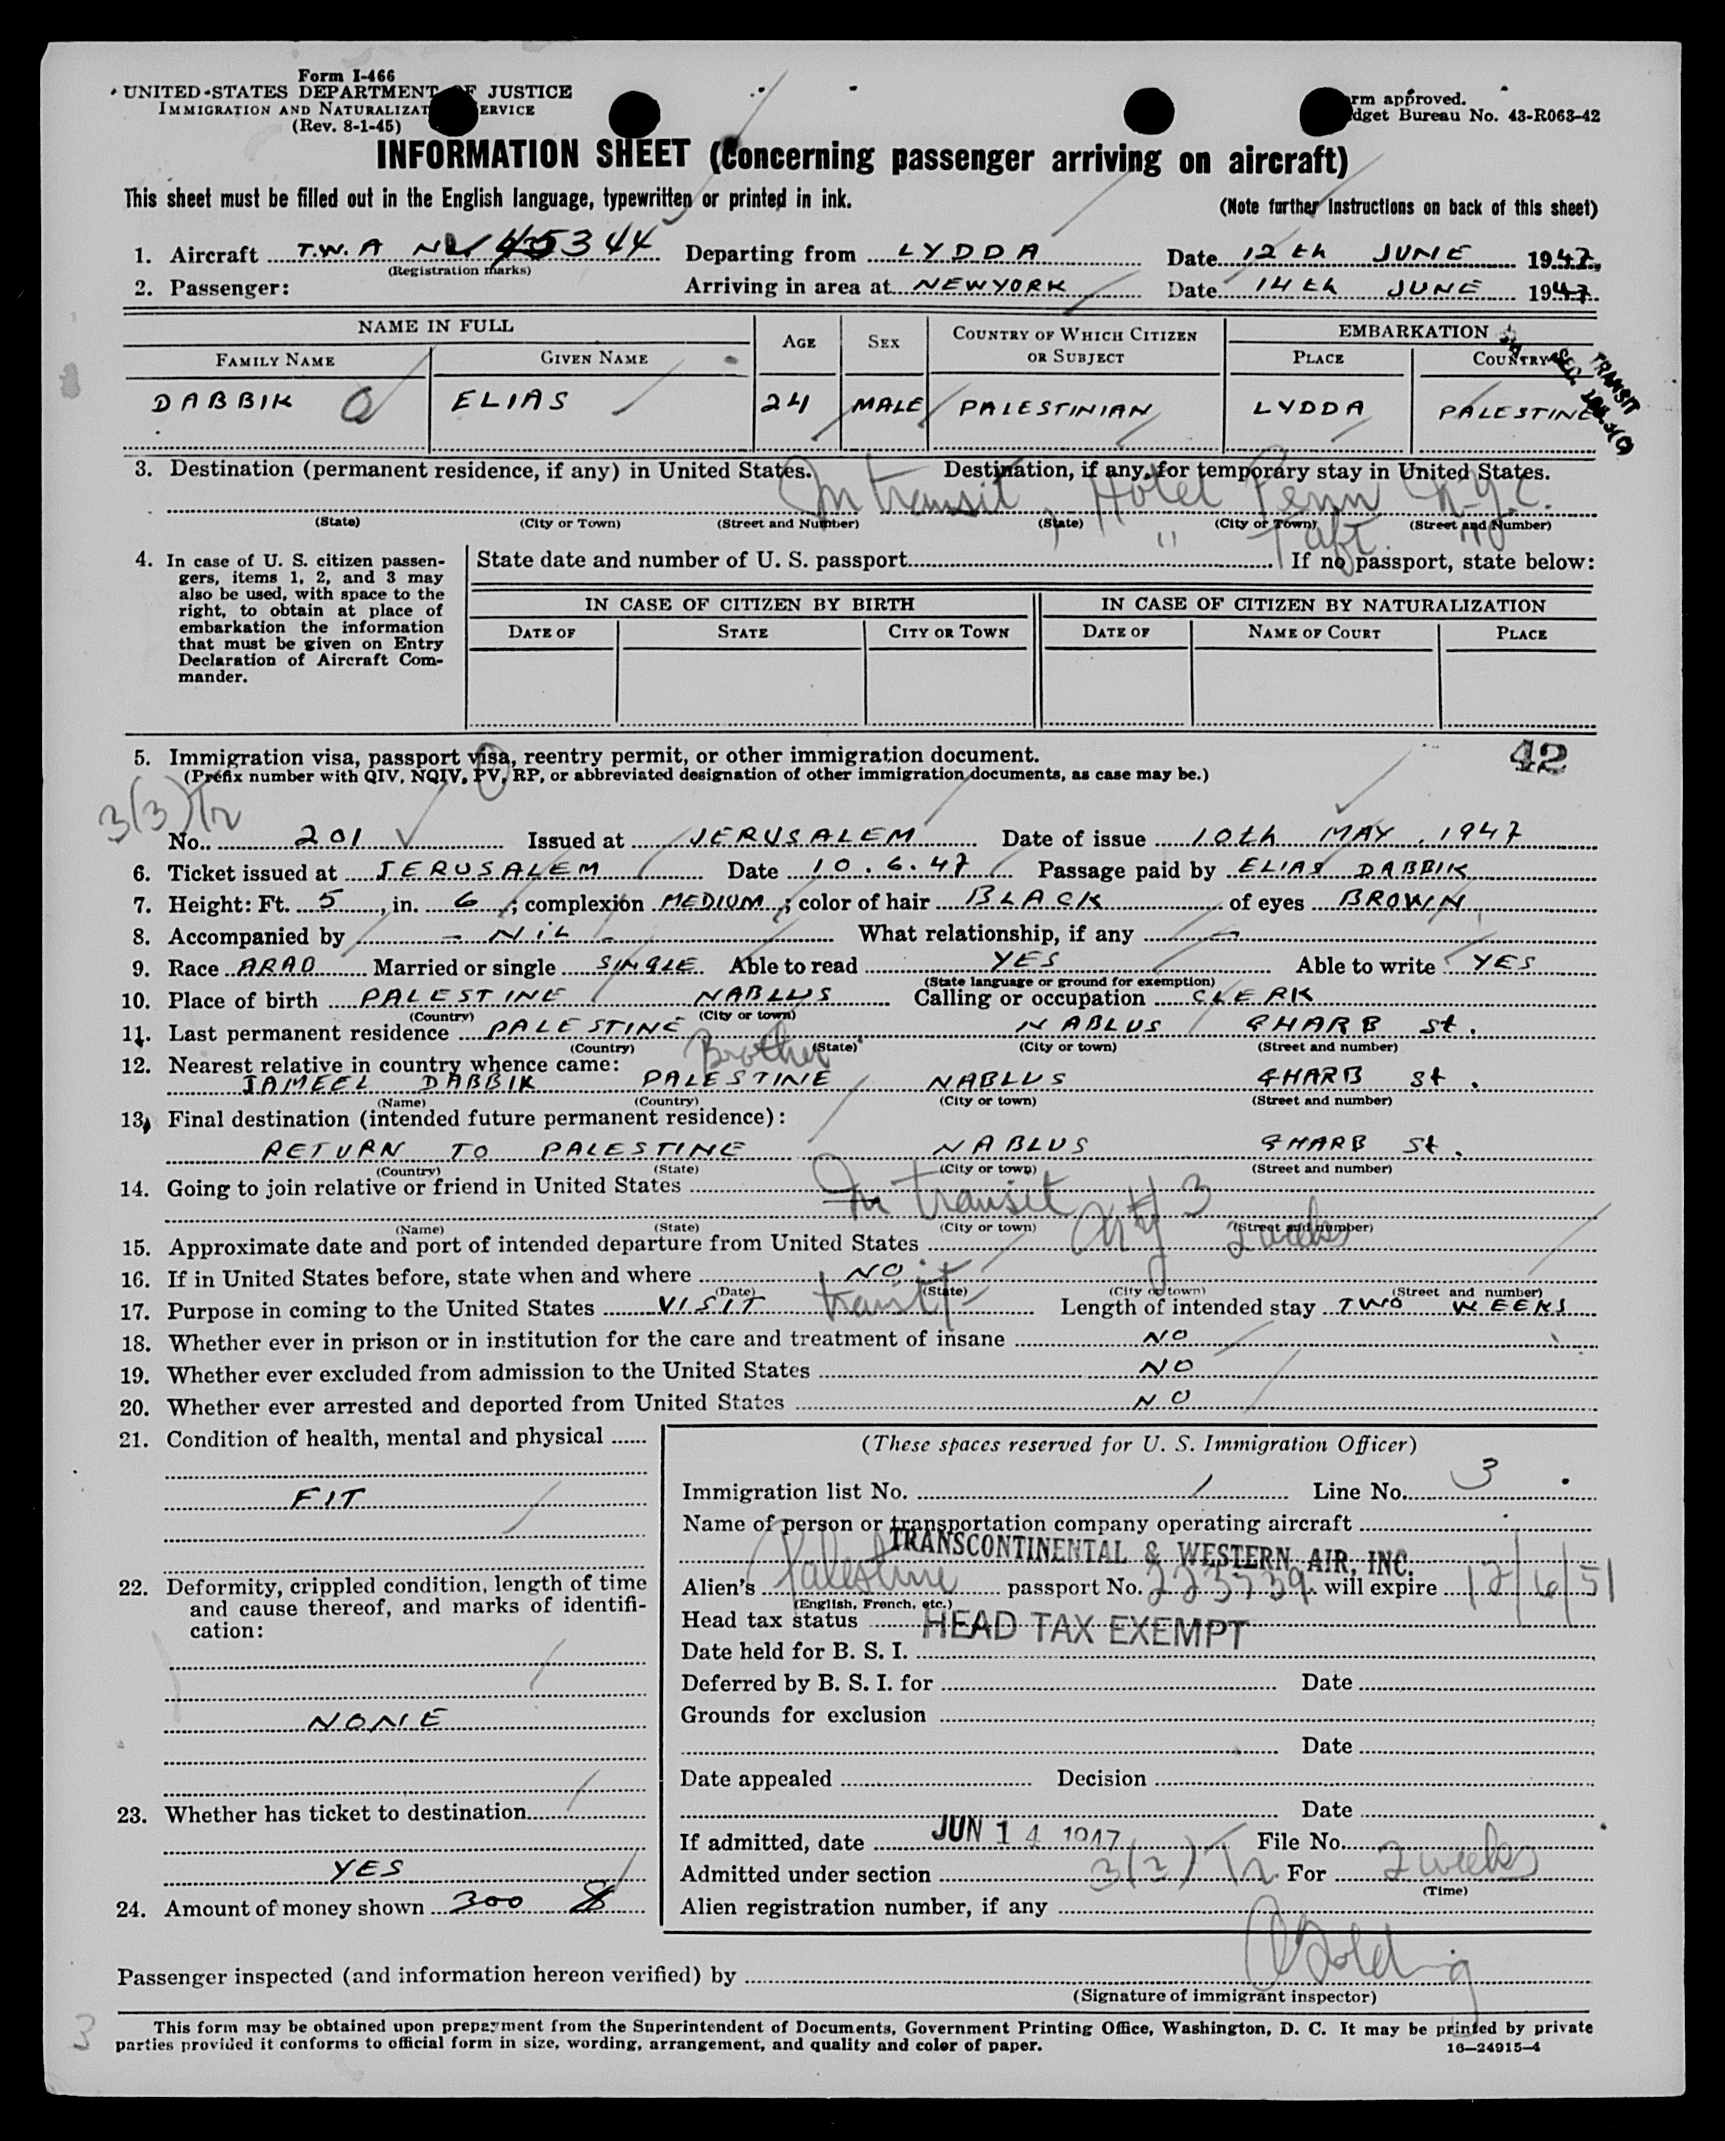 Form I-466
UNITED STATES DEPARTMENT OF JUSTICE
IMMIGRATION AND NATURALIZATION SERVICE
(Rev. 8-1-45)
Form approved.
Budget Bureau No. 43-R063-42
INFORMATION SHEET (Concerning passenger arriving on aircraft)
This sheet must be filled out in the English language, typewritten or printed in ink.
(Note further instructions on back of this sheet)
1. Aircraft T.W.A 45344 Departing from LYDDA Date 12th JUNE 1947,
(Registration marks)
2. Passenger: Arriving in area at NEWYORK Date 14th JUNE 1947.
NAME IN FULL AGE SEX COUNTRY OF WHICH CITIZEN OR SUBJECT EMBARKATION
FAMILY NAME GIVEN NAME PLACE COUNTRY
TRANSIT
DABBIK ELIAS 24 MALE PALESTINIAN LYDDA PALESTINE
3. Destination (permanent residence, if any) in United States. Destination, if any, for temporary stay in United States.
In transit Hotel Penn N.Y.C.
(State) (City or Town) (Street and Number) (State) (City or Town) (Street and Number)
" Taft. "
4. In case of U. S. citizen passengers, items 1, 2, and 3 may also be used, with space to the right, to obtain at place of embarkation the information that must be given on Entry Declaration of Aircraft Commander.
State date and number of U. S. passport If no passport, state below:
IN CASE OF CITIZEN BY BIRTH IN CASE OF CITIZEN BY NATURALIZATION
DATE OF STATE CITY OR TOWN DATE OF NAME OF COURT PLACE
5. Immigration visa, passport visa, reentry permit, or other immigration document. 42
(Prefix number with QIV, NQIV, PV, RP, or abbreviated designation of other immigration documents, as case may be.)
3(3)
No. 201 Issued at JERUSALEM Date of issue 10th MAY, 1947
6. Ticket issued at JERUSALEM Date 10.6.47 Passage paid by ELIAS DABBIK
7. Height: Ft. 5, in. 6; complexion MEDIUM; color of hair BLACK of eyes BROWN
8. Accompanied by - NIL - What relationship, if any -
9. Race ARAB Married or single SINGLE Able to read YES Able to write YES
(State language or ground for exemption)
10. Place of birth PALESTINE NABLUS Calling or occupation CLERK
(Country) (City or town)
11. Last permanent residence PALESTINE NABLUS GHARB St.
(Country) (State) (City or town) (Street and number)
12. Nearest relative in country whence came: Brother
JAMEEL DABBIK PALESTINE NABLUS GHARB St.
(Name) (Country) (City or town) (Street and number)
13. Final destination (intended future permanent residence):
RETURN TO PALESTINE NABLUS GHARB St.
(Country) (State) (City or town) (Street and number)
14. Going to join relative or friend in United States
In transit
(Name) (State) (City or town) (Street and number)
15. Approximate date and port of intended departure from United States NY 2 weeks
16. If in United States before, state when and where NO
(Date) (State) (City or town) (Street and number)
17. Purpose in coming to the United States VISIT transit Length of intended stay TWO WEEKS
18. Whether ever in prison or in institution for the care and treatment of insane NO
19. Whether ever excluded from admission to the United States NO
20. Whether ever arrested and deported from United States NO
21. Condition of health, mental and physical
FIT
22. Deformity, crippled condition, length of time and cause thereof, and marks of identification:
NONE
23. Whether has ticket to destination
YES
24. Amount of money shown 300 $
(These spaces reserved for U. S. Immigration Officer)
Immigration list No. 1 Line No. 3
Name of person or transportation company operating aircraft
TRANSCONTINENTAL & WESTERN AIR, INC.
Alien's Palestine passport No. 223739 will expire 12/6/51
(English, French, etc.)
Head tax status HEAD TAX EXEMPT
Date held for B. S. I.
Deferred by B. S. I. for Date
Grounds for exclusion
Date
Date appealed Decision
Date
If admitted, date JUN 14 1947 File No.
Admitted under section 3(2) For 2 weeks
(Time)
Alien registration number, if any
Passenger inspected (and information hereon verified) by
(Signature of immigrant inspector)
3
This form may be obtained upon prepayment from the Superintendent of Documents, Government Printing Office, Washington, D. C. It may be printed by private
parties provided it conforms to official form in size, wording, arrangement, and quality and color of paper.
16—24915-4